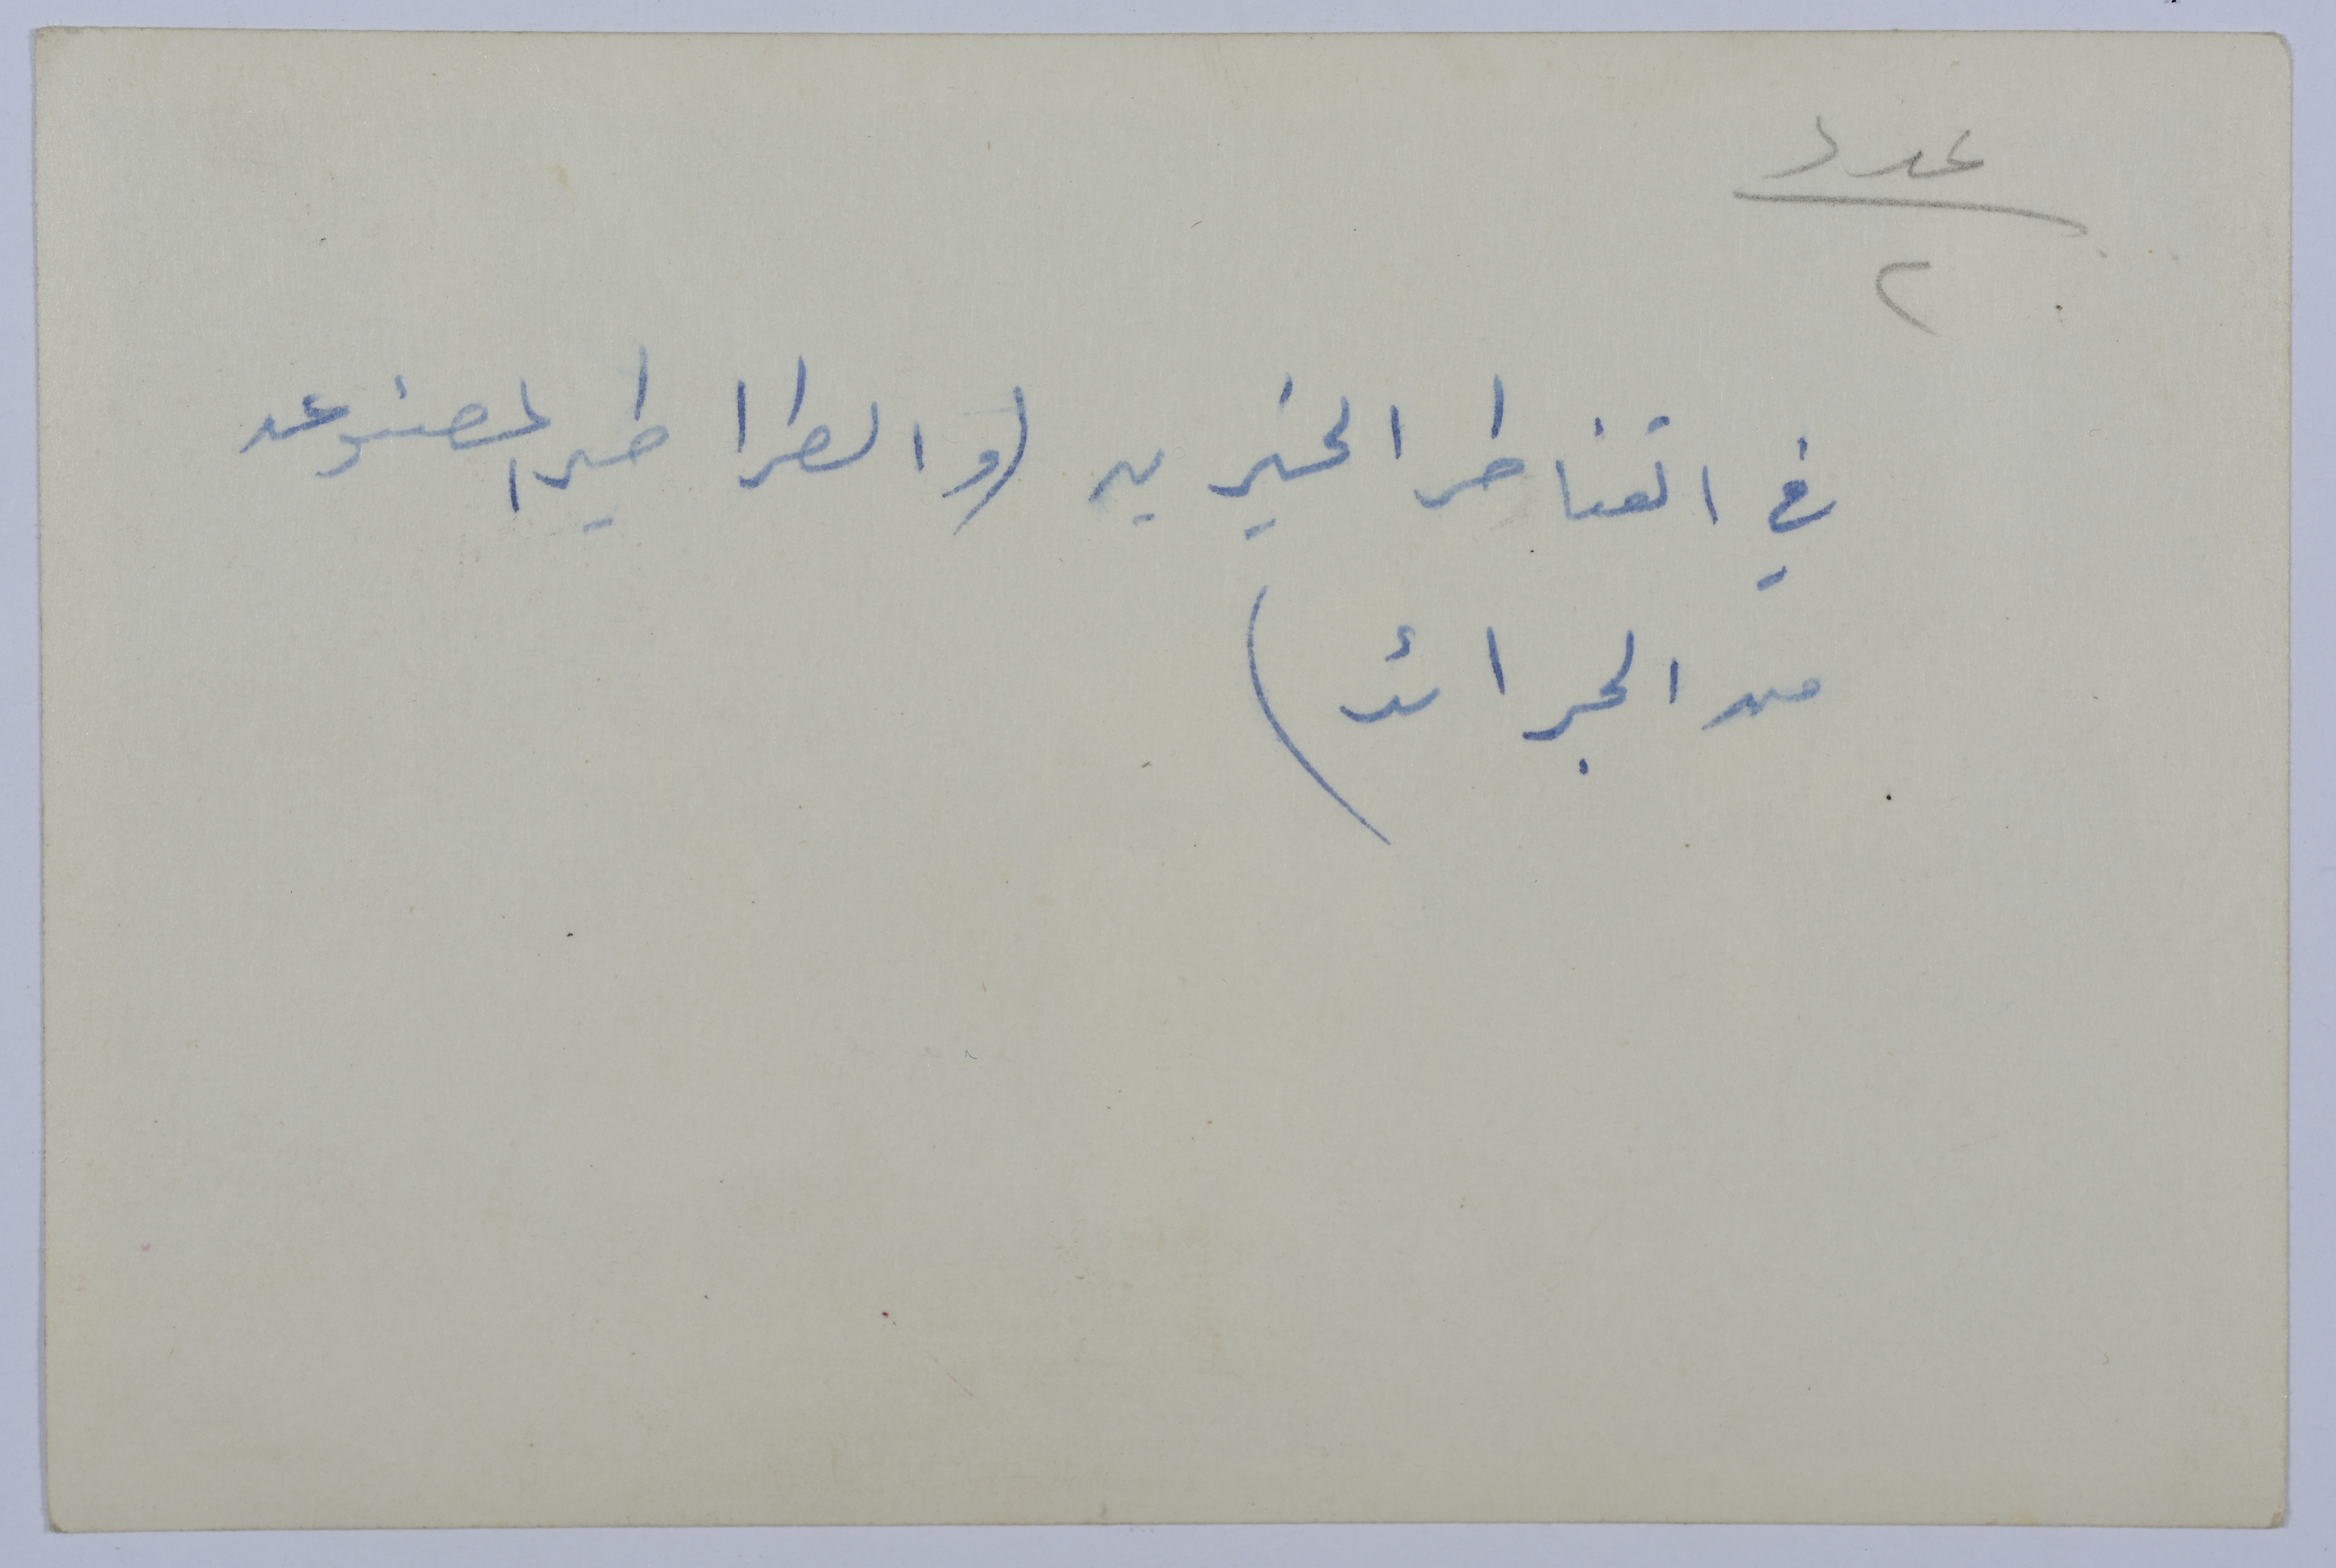 عدد
٢
في القناطر الخيريه (و الطراطير المصنوعه
من الجرائد)